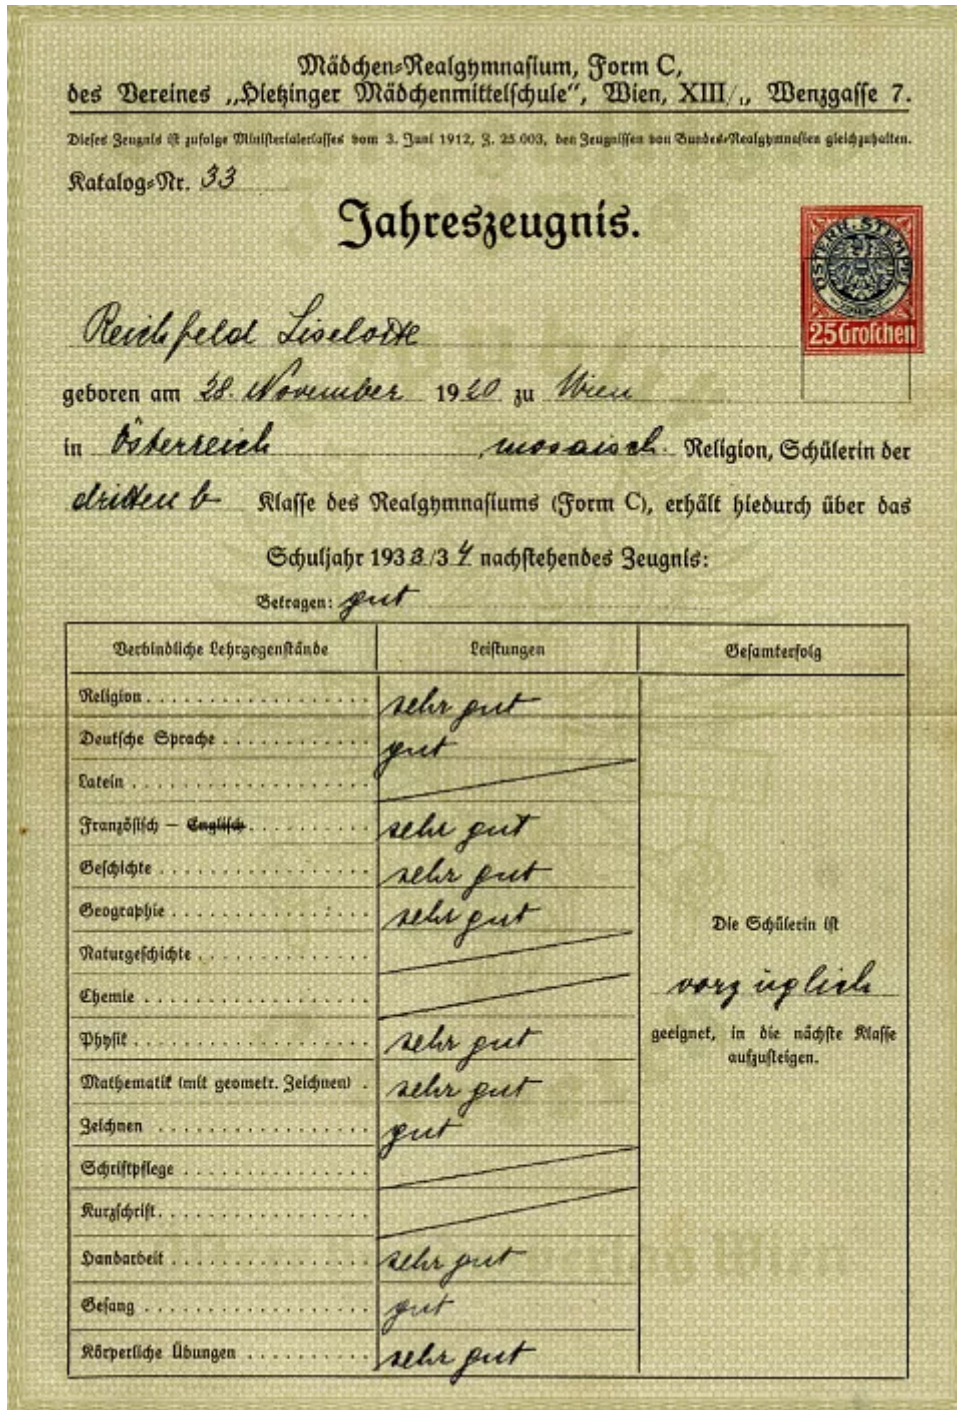 Mädchen-Realgymnasium, Form C,
des Vereines „Hietzinger Mädchenmittelschule“, Wien, XIII/1, Wenzgasse 7.
Dieses Zeugnis ist zufolge Ministerialerlasses vom 3. Juni 1912, Z. 25.003, den Zeugnissen von Bundes-Realgymnasien gleichzuhalten.
Katalog-Nr. 33
Jahreszeugnis.
ÖSTERR. STEMPEL
25 Groschen
Reichfeld Liselotte
geboren am 28. November 1920 zu Wien
in Österreich, mosaisch. Religion, Schülerin der
dritten b Klasse des Realgymnasiums (Form C), erhält hiedurch über das
Schuljahr 1933/34 nachstehendes Zeugnis:
Betragen: gut
Verbindliche Lehrgegenstände Leistungen Gesamterfolg
Religion sehr gut
Deutsche Sprache gut
Latein
Französisch — Englisch sehr gut
Geschichte sehr gut
Geographie sehr gut
Naturgeschichte
Chemie
Physik sehr gut
Mathematik (mit geometr. Zeichnen) sehr gut
Zeichnen gut
Schriftpflege
Kurzschrift
Handarbeit sehr gut
Gesang gut
Körperliche Übungen sehr gut
Die Schülerin ist
vorzüglich
geeignet, in die nächste Klasse
aufzusteigen.